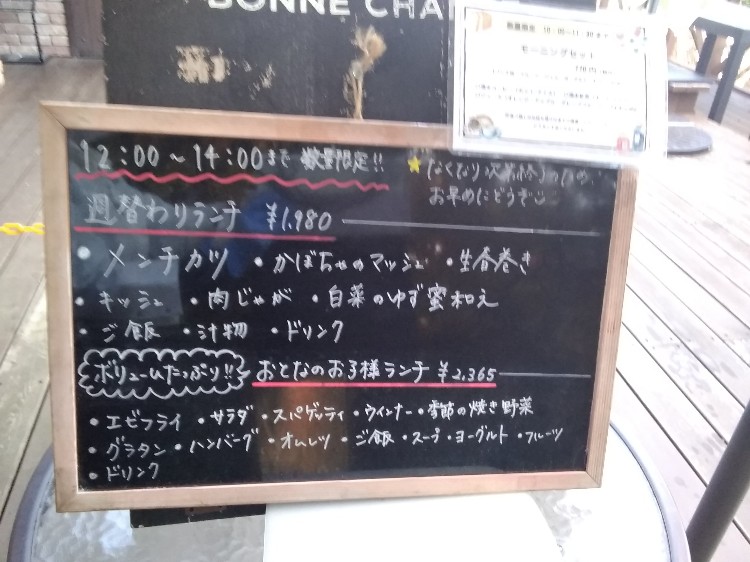 BONNE CHA
モーニングセット
12:00〜14:00まで 数量限定!!
★なくなり次第終了のため、
お早めにどうぞ
週替わりランチ ¥1,980
・メンチカツ ・かぼちゃのマッシュ ・生春巻き
・キッシュ ・肉じゃが ・白菜のゆず蜜和え
・ご飯 ・汁物 ・ドリンク
ボリュームたっぷり!! おとなのお子様ランチ ¥2,365
・エビフライ ・サラダ ・スパゲッティ ・ウィンナー ・季節の焼き野菜
・グラタン ・ハンバーグ ・オムレツ ・ご飯 ・スープ ・ヨーグルト ・フルーツ
・ドリンク